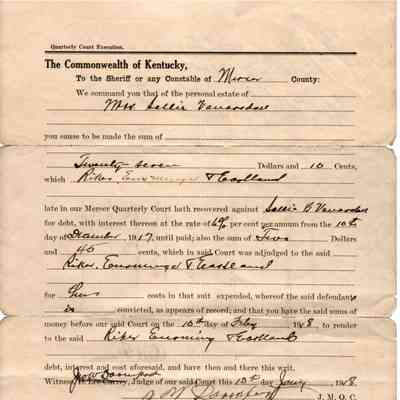 Quarterly Court Execution.
The Commonwealth of Kentucky,
To the Sheriff or any Constable of Mercer County:
We command you that of the personal estate of
Mrs Sallie Vanarsdall
you cause to be made the sum of
Twenty seven Dollars and 10 Cents,
which Riker, & Eastland
late in our Mercer Quarterly Court hath recovered against Sallie B Vanarsdall
for debt, with interest thereon at the rate of 6% per cent per annum from the 10th
day of December 1917, until paid; also the sum of Two Dollars
and 40 cents, which in said Court was adjudged to the said
Riker, & Eastland
for their costs in that suit expended, whereof the said defendant
is convicted, as appears of record; and that you have the said sums of
money before our said Court on the 10th day of Feby 1918, to render
to the said Riker & Eastland
debt, interest and cost aforesaid, and have then and there this writ.
Witness, Judge of our said Court this 10th day Jany 1918.
J. M. Q. C.